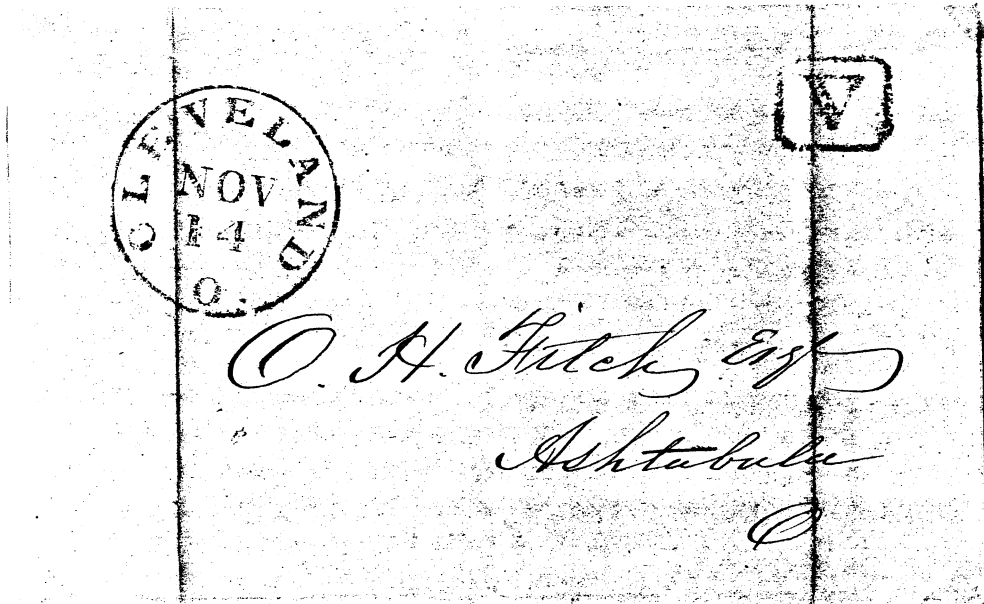 CLEVELAND
NOV
14
O.
V
O. H. Fitch, Esqr
Ashtabula
O